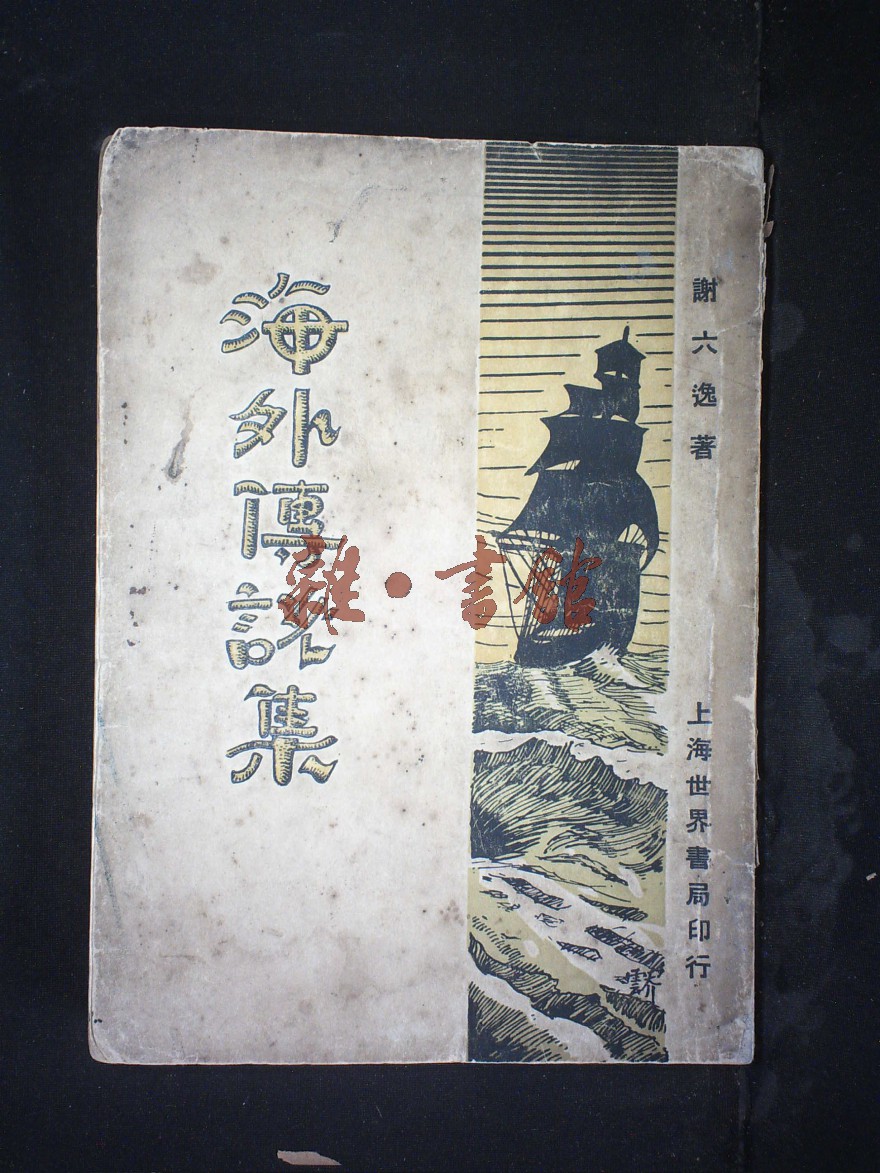 海外傳說集
謝六逸著
上海世界書局印行
雜·書館